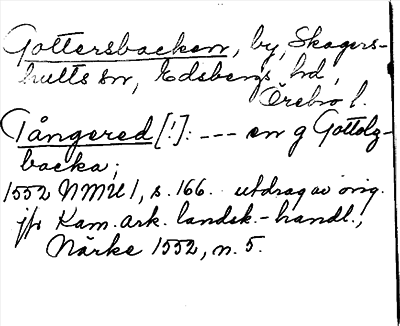 Gottersbacken, by, Skagers-
hults sn, Edsbergs hd,
Örebro l.
Tångered [!]: --- en g Gottolz-
backa;
1552 NMU 1, s. 166. utdrag av orig.
jfr Kam. ark. landsk.-handl.,
Närke 1552, n. 5.